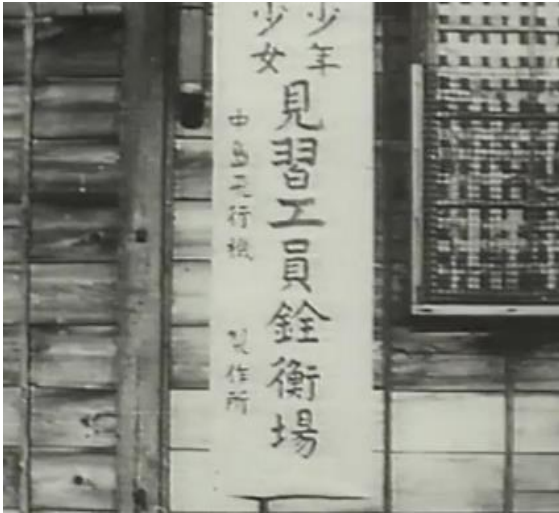 少年
少女
見習工員銓衡場
中島飛行機 製作所